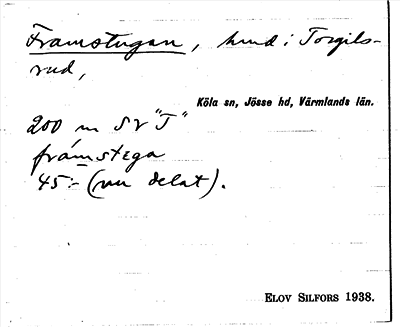 Framstugan, hmd i Torgils-
rud,
Köla sn, Jösse hd, Värmlands län.
200 m SV "T"
framstega
45:- (nu delat).
ELOV SILFORS 1938.